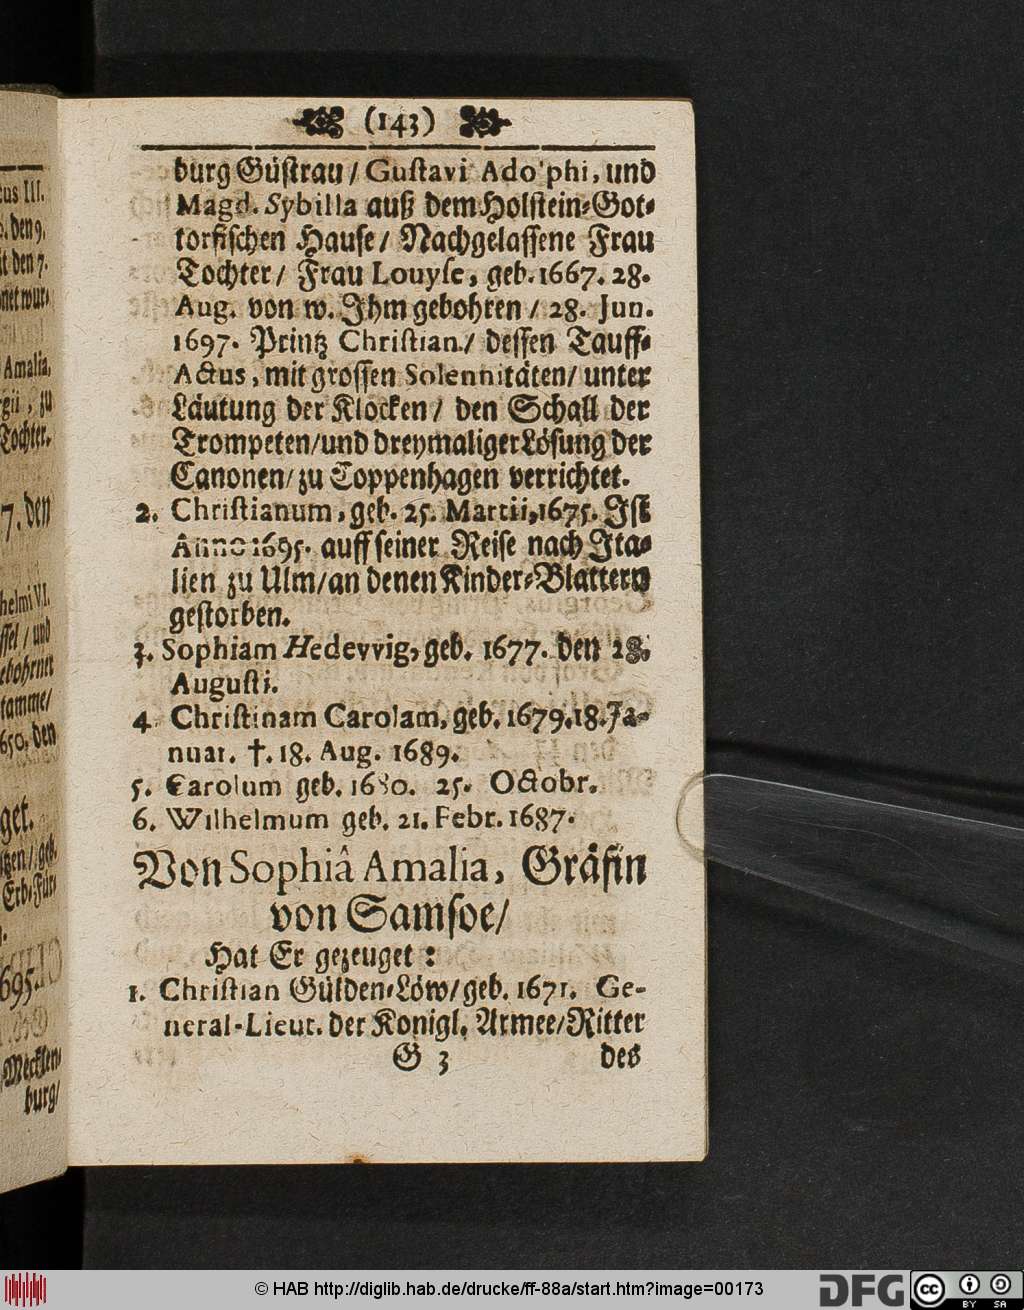 (143)
burg Güstrau / Gustavi Adolphi, und
Magd. Sybilla auß dem Holstein-Got-
torfischen Hause / Nachgelassene Frau
Tochter / Frau Louyse, geb. 1667. 28.
Aug. von w. Ihm gebohren / 28. Jun.
1697. Printz Christian / dessen Tauff-
Actus, mit grossen Solennitäten / unter
Läutung der Klocken / den Schall der
Trompeten / und dreymaliger Lösung der
Canonen / zu Coppenhagen verrichtet.
2. Christianum, geb. 25. Martii, 1675. Ist
Anno 1695. auff seiner Reise nach Ita-
lien zu Ulm / an denen Kinder-Blattern
gestorben.
3. Sophiam Hedevvig, geb. 1677. den 28.
Augusti.
4. Christinam Carolam, geb. 1679. 18. Ja-
nuar. †. 18. Aug. 1689.
5. Carolum geb. 1680. 25. Octobr.
6. Wilhelmum geb. 21. Febr. 1687.
Von Sophiâ Amalia, Gräfin
von Samsoe /
Hat Er gezeuget:
1. Christian Gülden-Löw / geb. 1671. Ge-
neral-Lieut. der Königl. Armee / Ritter
G 3 des
tus III.
den 9.
den 7.
Amalia,
zu
Tochter.
7. den
helmi VI.
und
tamme /
650. den
get.
geb.
Erb-Für-
1695.
Mecklen-
burg /
© HAB http://diglib.hab.de/drucke/ff-88a/start.htm?image=00173
DFG
cc
BY SA